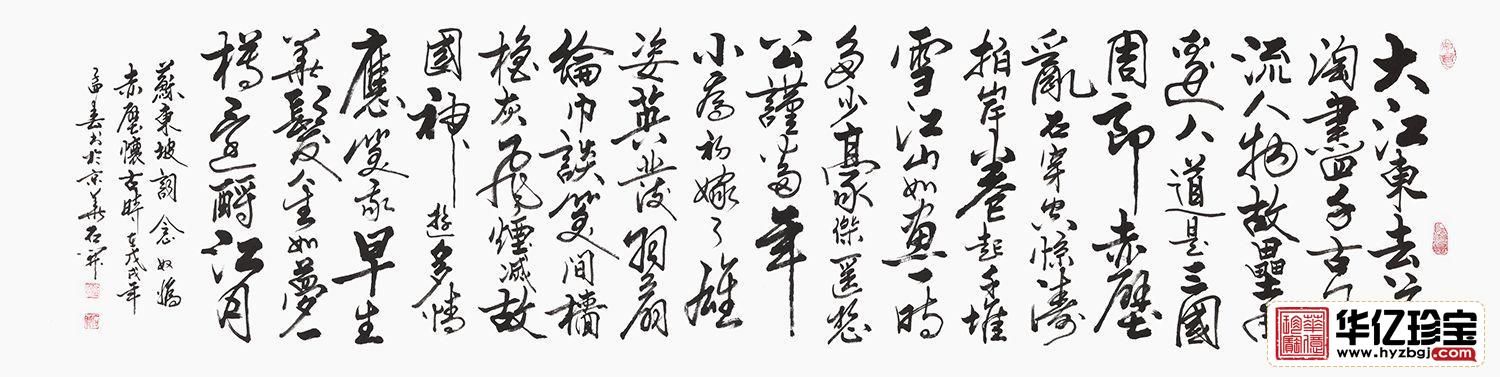 大江東去浪
淘盡千古風
流人物故壘西
邊人道是三國
周郎赤壁
亂石穿空驚濤
拍岸卷起千堆
雪江山如畫一時
多少豪傑遥想
公謹當年
小喬初嫁了雄
姿英發羽扇
綸巾談笑間檣
櫓灰飛煙滅故
國神遊多情
應笑我早生
華髮人生如夢一
樽還酹江月
蘇東坡詞念奴嬌
赤壁懷古時在戊戌年
孟春書於京華石開
华亿珍宝
www.hyzbgj.com